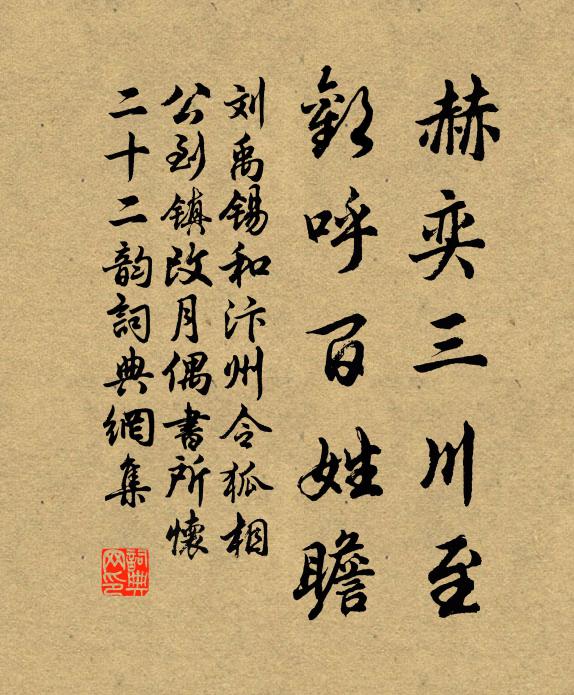 赫奕三川至
歡呼百姓瞻
刘禹锡和汴州令狐相
公到镇改月偶書所懷
二十二韵詞典網集
詞典
网印